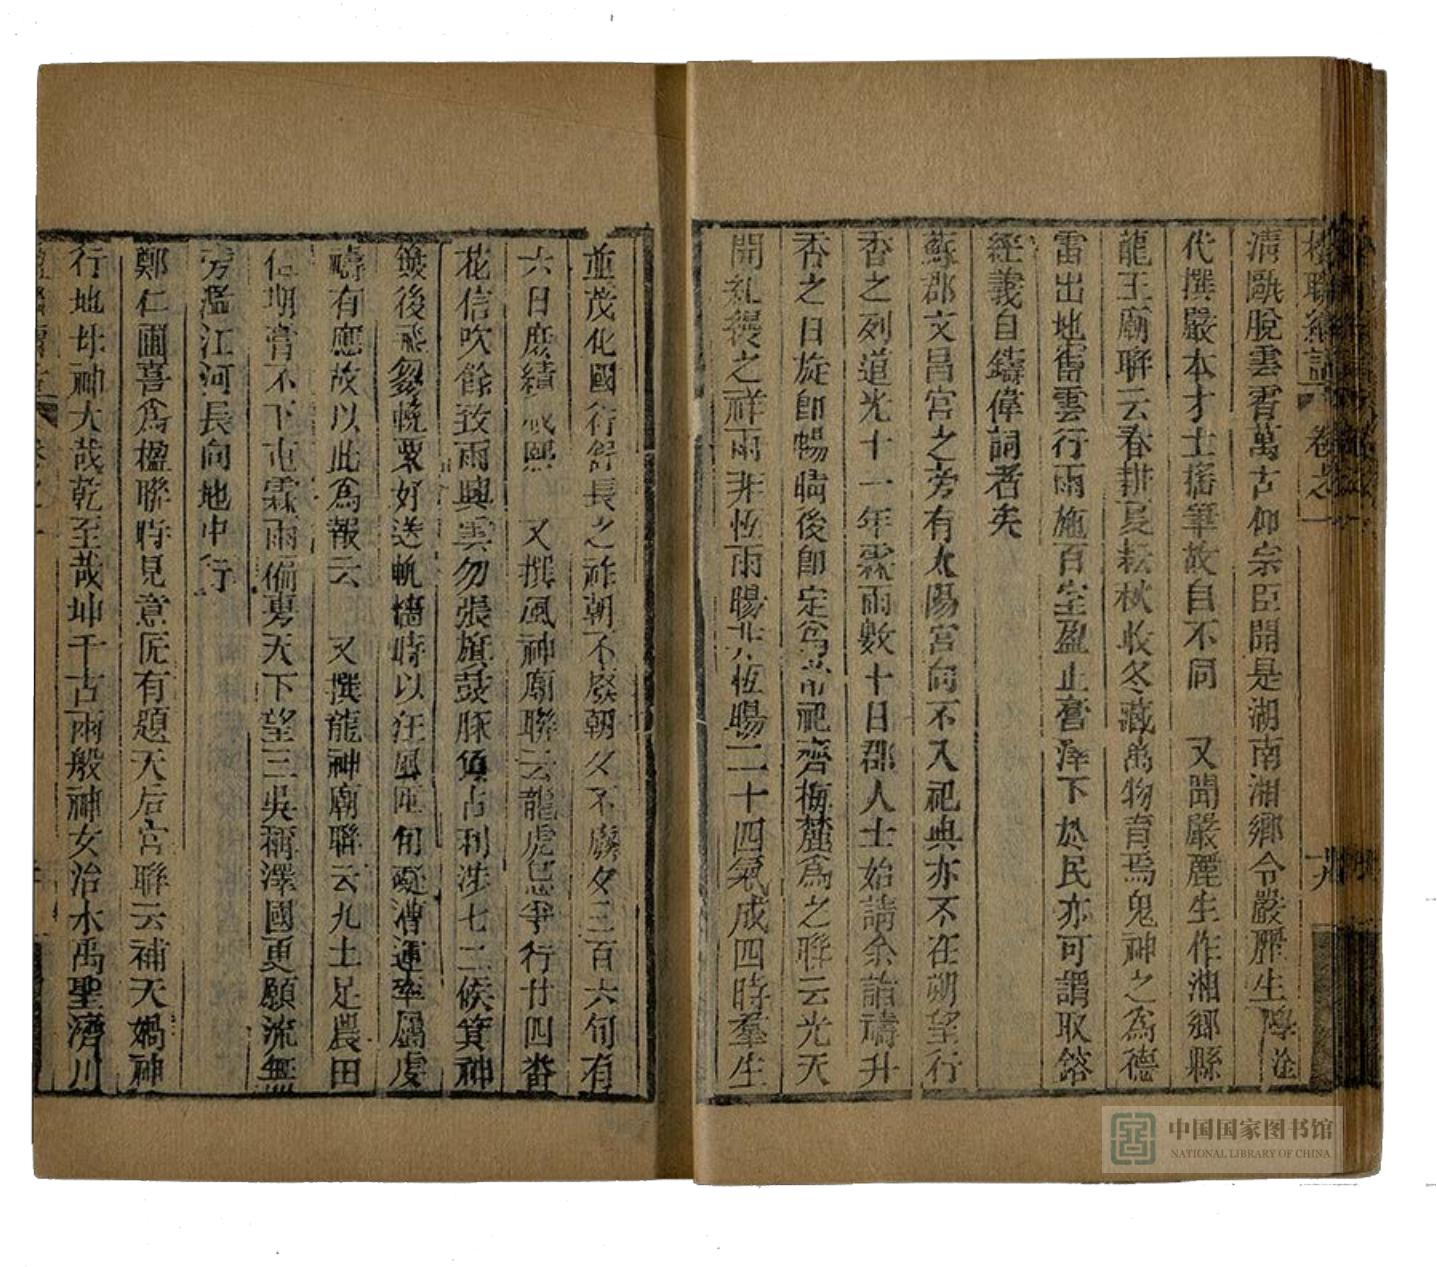 楹聯續話 卷之一 十九
清勵脫雲霄萬古仰宗臣開是湖南湘鄉令嚴麗生學淦
代撰嚴本才士搖筆故自不同 又聞嚴麗生作湘鄉縣
龍王廟聯云春耕夏耘秋收冬藏萬物育焉鬼神之為德
雷出地奮雲行雨施百室盈止膏澤下於民亦可謂取鎔
經義自鑄偉詞者矣
蘇郡文昌宮之旁有太陽宮向不入祀典亦不在朔望行
香之列道光十一年霖雨數十日郡人士始請余詣禱升
香之日旋即暢晴後即定為常祀齊梅麓為之聯云光天
開紀縵之祥雨非恆雨暘非恆暘二十四氣成四時羣生
並茂化國衍舒長之祚朝不廢朝夕不廢夕三百六旬有
六日庶績咸熙 又撰風神廟聯云龍虎息爭行廿四番
花信吹餘孜雨興雲勿張旗鼓豚魚占利涉七二候箕神
簸後飛芻輓粟好送帆檣時以狂風匝旬礙漕運率屬虔
禱有應故以此為報云 又撰龍神廟聯云九土足農田
佇期膏不下屯霖雨偏專天下望三吳稱澤國更願流無
旁濫江河長向地中行
鄭仁圃喜為楹聯時見意匠有題天后宮聯云補天媧神
行地母神大哉乾至哉坤千古兩般神女治水禹聖濟川